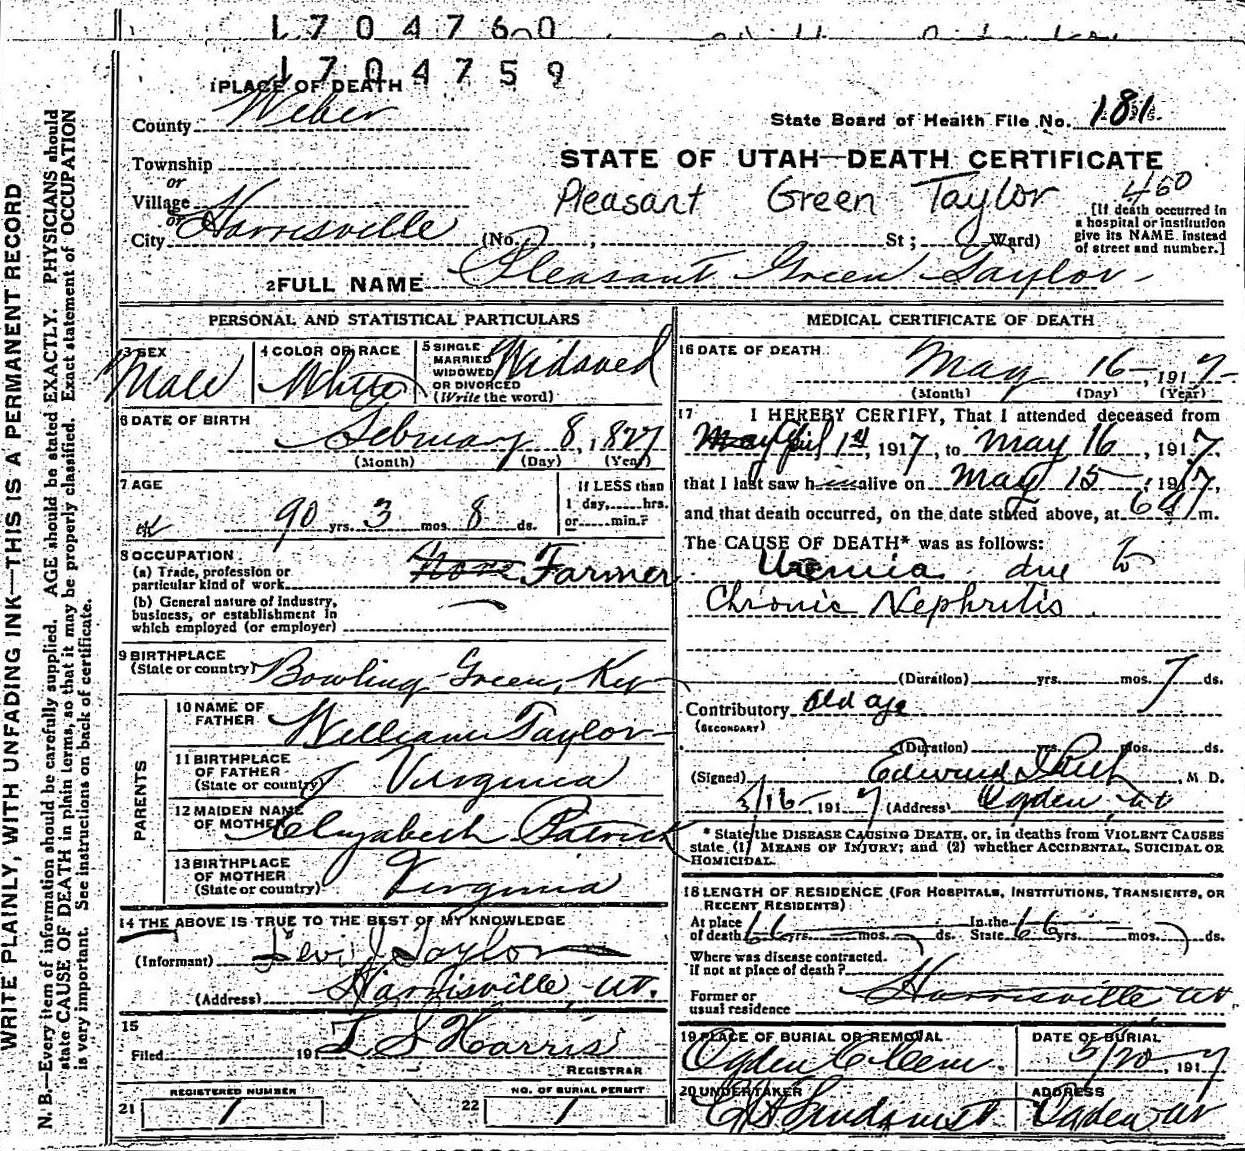 1704760
1704759
WRITE PLAINLY, WITH UNFADING INK—THIS IS A PERMANENT RECORD
N. B.—Every item of information should be carefully supplied. AGE should be stated EXACTLY. PHYSICIANS should
state CAUSE OF DEATH in plain terms, so that it may be properly classified. Exact statement of OCCUPATION
is very important. See instructions on back of certificate.
1 PLACE OF DEATH
County Weber
State Board of Health File No. 181
Township
or
Village
or
City Harrisville
STATE OF UTAH—DEATH CERTIFICATE
Pleasant Green Taylor 460
(No. , St; Ward)
[If death occurred in
a hospital or institution
give its NAME instead
of street and number.]
2 FULL NAME Pleasant Green Taylor
PERSONAL AND STATISTICAL PARTICULARS
3 SEX
Male
4 COLOR OR RACE
White
5 SINGLE
MARRIED
WIDOWED
OR DIVORCED
(Write the word)
Widowed
6 DATE OF BIRTH
February 8, 1827
(Month) (Day) (Year)
7 AGE
90 yrs. 3 mos. 8 ds.
If LESS than
1 day, hrs.
or min.?
8 OCCUPATION
(a) Trade, profession or
particular kind of work None Farmer
(b) General nature of industry,
business, or establishment in
which employed (or employer)
9 BIRTHPLACE
(State or country) Bowling Green, Ky
PARENTS
10 NAME OF
FATHER William Taylor
11 BIRTHPLACE
OF FATHER
(State or country) Virginia
12 MAIDEN NAME
OF MOTHER Elizabeth Patrick
13 BIRTHPLACE
OF MOTHER
(State or country) Virginia
14 THE ABOVE IS TRUE TO THE BEST OF MY KNOWLEDGE
(Informant) Levi J Taylor
(Address) Harrisville, Ut.
15
Filed 191 L S Harris
REGISTRAR
21 REGISTERED NUMBER
1
22 NO. OF BURIAL PERMIT
1
MEDICAL CERTIFICATE OF DEATH
16 DATE OF DEATH
May 16, 1917
(Month) (Day) (Year)
17 I HEREBY CERTIFY, That I attended deceased from
May April 1st, 1917, to May 16, 1917,
that I last saw him alive on May 15, 1917,
and that death occurred, on the date stated above, at 6 m.
The CAUSE OF DEATH* was as follows:
Uremia due to
Chronic Nephritis.
(Duration) yrs. mos. 7 ds.
Contributory Old age
(SECONDARY)
(Duration) yrs. mos. ds.
(Signed) Edward I Rich, M. D.
5/16-1917 (Address) Ogden Ut
* State the DISEASE CAUSING DEATH, or, in deaths from VIOLENT CAUSES
state (1) MEANS OF INJURY; and (2) whether ACCIDENTAL, SUICIDAL OR
HOMICIDAL.
18 LENGTH OF RESIDENCE (FOR HOSPITALS, INSTITUTIONS, TRANSIENTS, OR
RECENT RESIDENTS)
At place
of death 66 yrs. mos. ds. In the State 66 yrs. mos. ds.
Where was disease contracted.
if not at place of death?
Former or
usual residence Harrisville Ut.
19 PLACE OF BURIAL OR REMOVAL
Ogden C Cem
DATE OF BURIAL
5/20, 1917
20 UNDERTAKER
ADDRESS
Ogden Ut